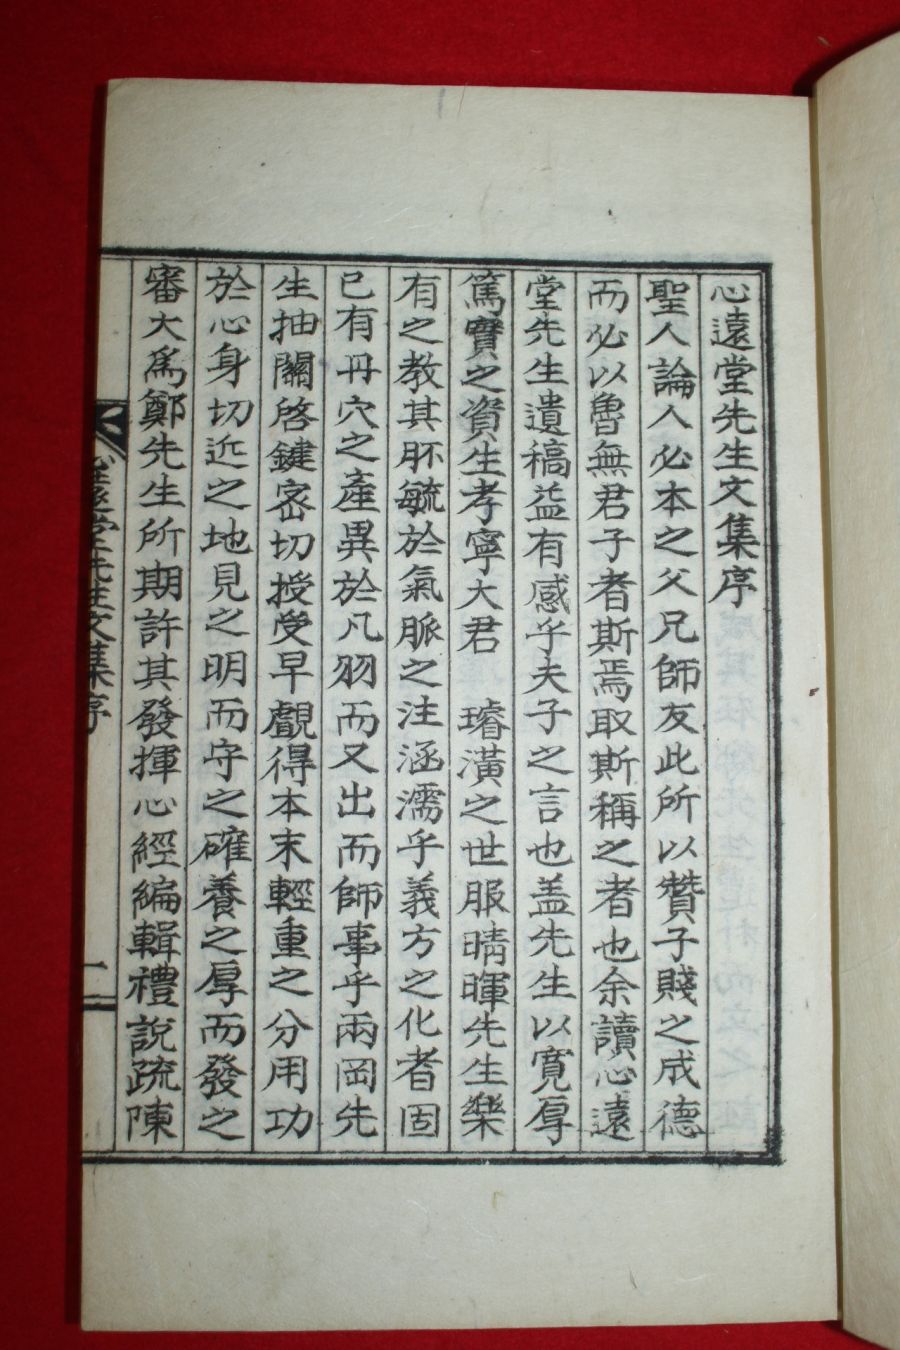 心遠堂先生文集序
聖人論人必本之父兄師友此所以贊子賤之成德
而必以魯無君子者斯焉取斯稱之者也余讀心遠
堂先生遺稿益有感乎夫子之言也盖先生以寛厚
篤實之資生孝寧大君 璿潢之世服晴暉先生樂
有之教其胚毓於氣脈之注涵濡乎義方之化者固
已有丹穴之產異於凡羽而又出而師事乎兩岡先
生抽關啓鍵密切授受早覰得本末輕重之分用功
於心身切近之地見之明而守之確養之厚而發之
審大爲鄭先生所期許其發揮心經編輯禮說疏陳
心遠堂先生文集序
一